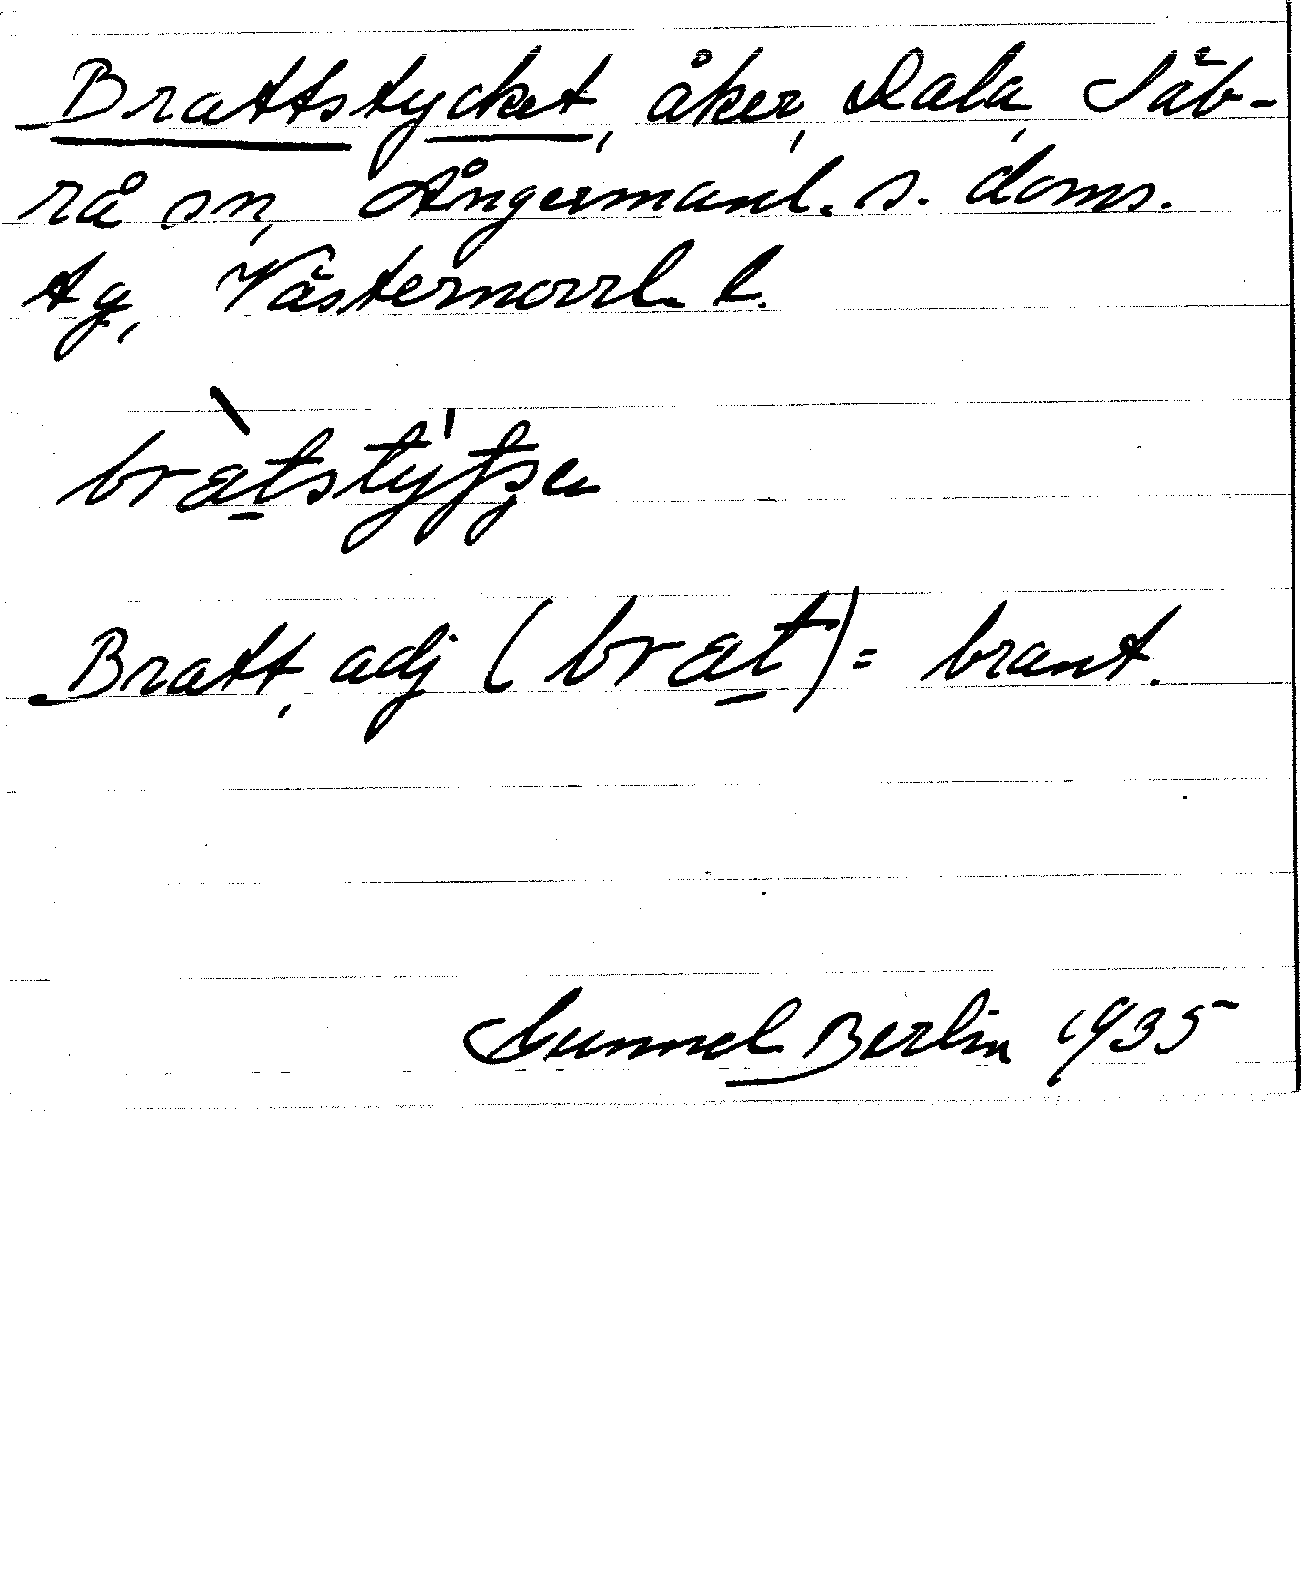 Brattstycket, åker, Dala, Säb-
rå sn, Ångermanl. s. doms.
tg, Västernorrl. l.
Bratt, adj (brat) = brant.
Gunnel Berlin 1935